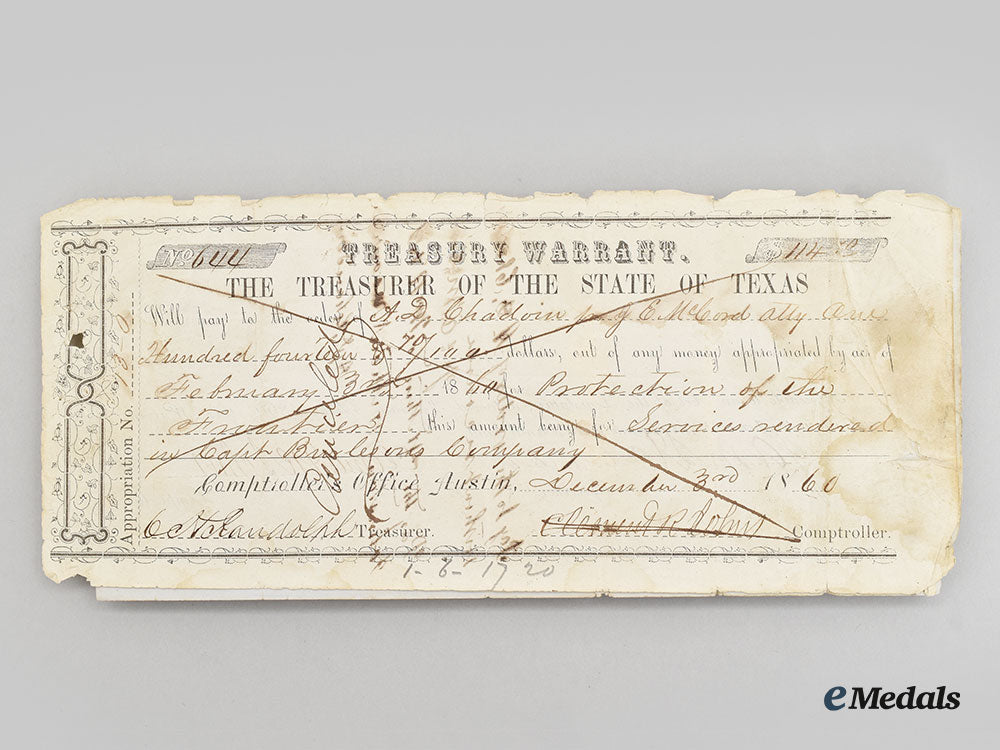 No 644 TREASURY WARRANT. $ 114
THE TREASURER OF THE STATE OF TEXAS
Will pay to the order of A.D. Chadoin pr J E. McCord atty One
Hundred fourteen & 70/100 dollars, out of any money appropriated by act of
February 3rd 1860 for Protection of the
Frontier this amount being for Services rendered
in Capt Burlesons Company
Comptroller's Office Austin, December 3rd 1860
C H Randolph Treasurer. Clement R Johns Comptroller.
Appropriation No.
Cancelled
1-6-1920
eMedals